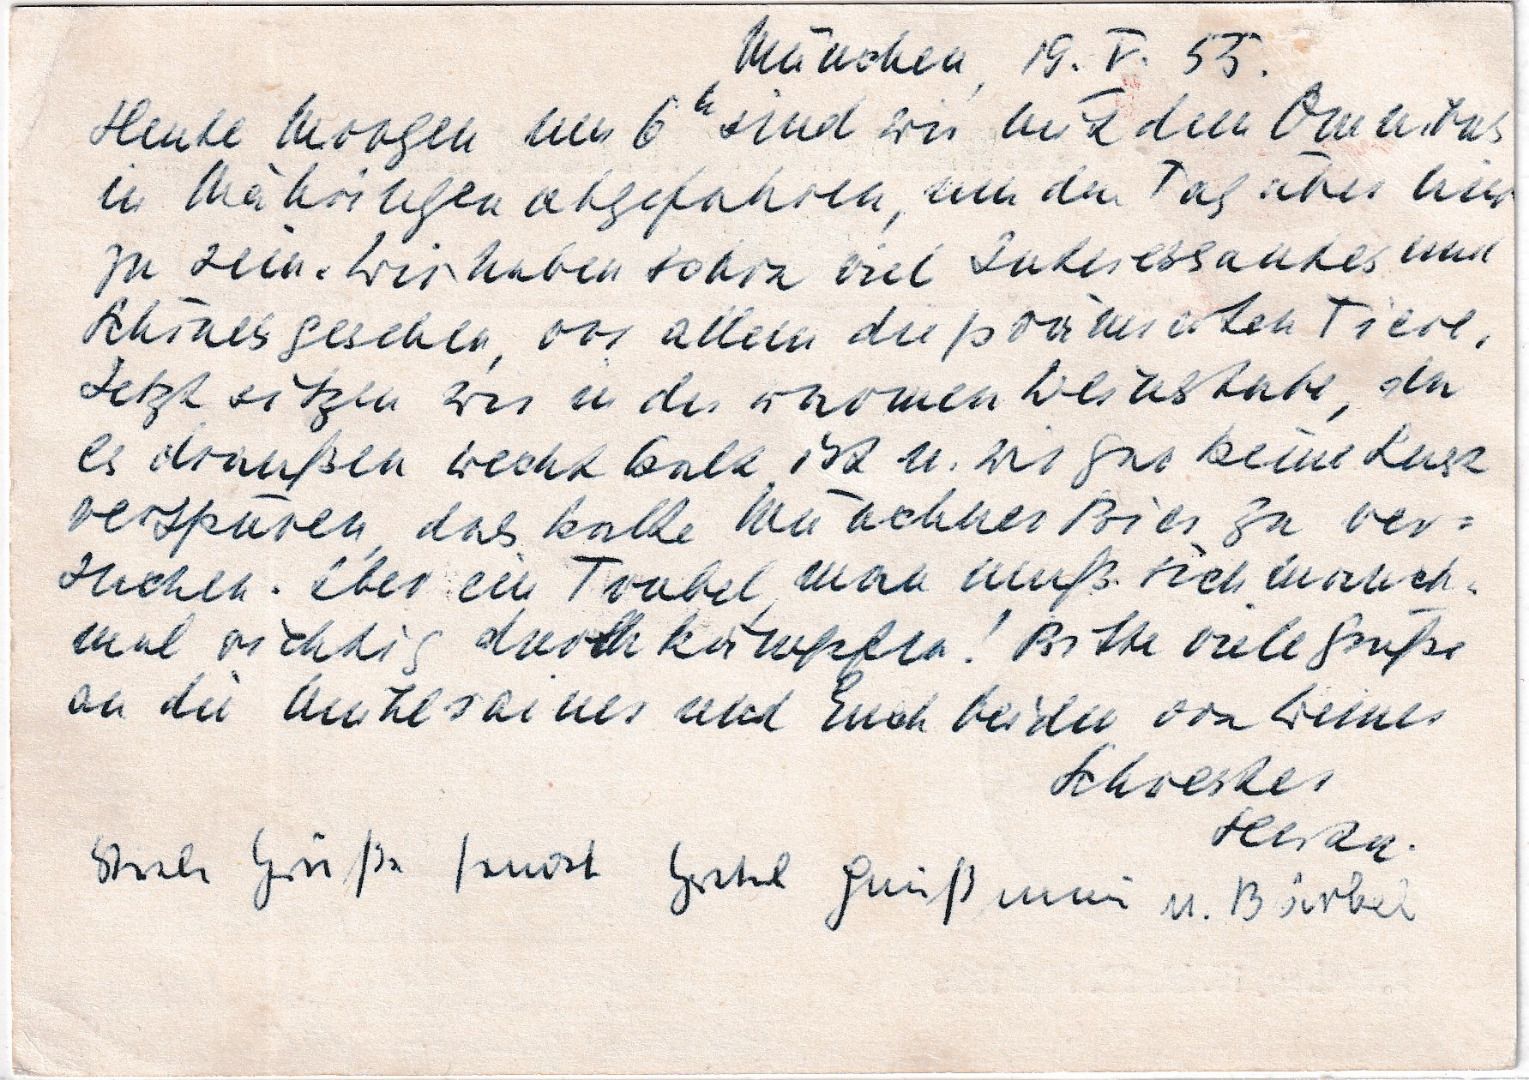 München, 19. V. 55.
Heute Morgen um 6ʰ sind wir mit dem Omnibus
in Mähringen abgefahren, um den Tag über hier
zu sein. Wir haben schon viel Interessantes und
Schönes gesehen, vor allem die prämierten Tiere.
Jetzt sitzen wir in der warmen Weinstube, da
es draußen recht kalt ist u. wir gar keine Lust
verspüren, das kalte Münchner Bier zu ver=
suchen. Aber ein Trubel, man muß sich manch-
mal richtig durchkämpfen! Bitte viele Grüße
an die und Euch beiden von Deiner
Schwester
Herta.
Grüße u. Bärbel